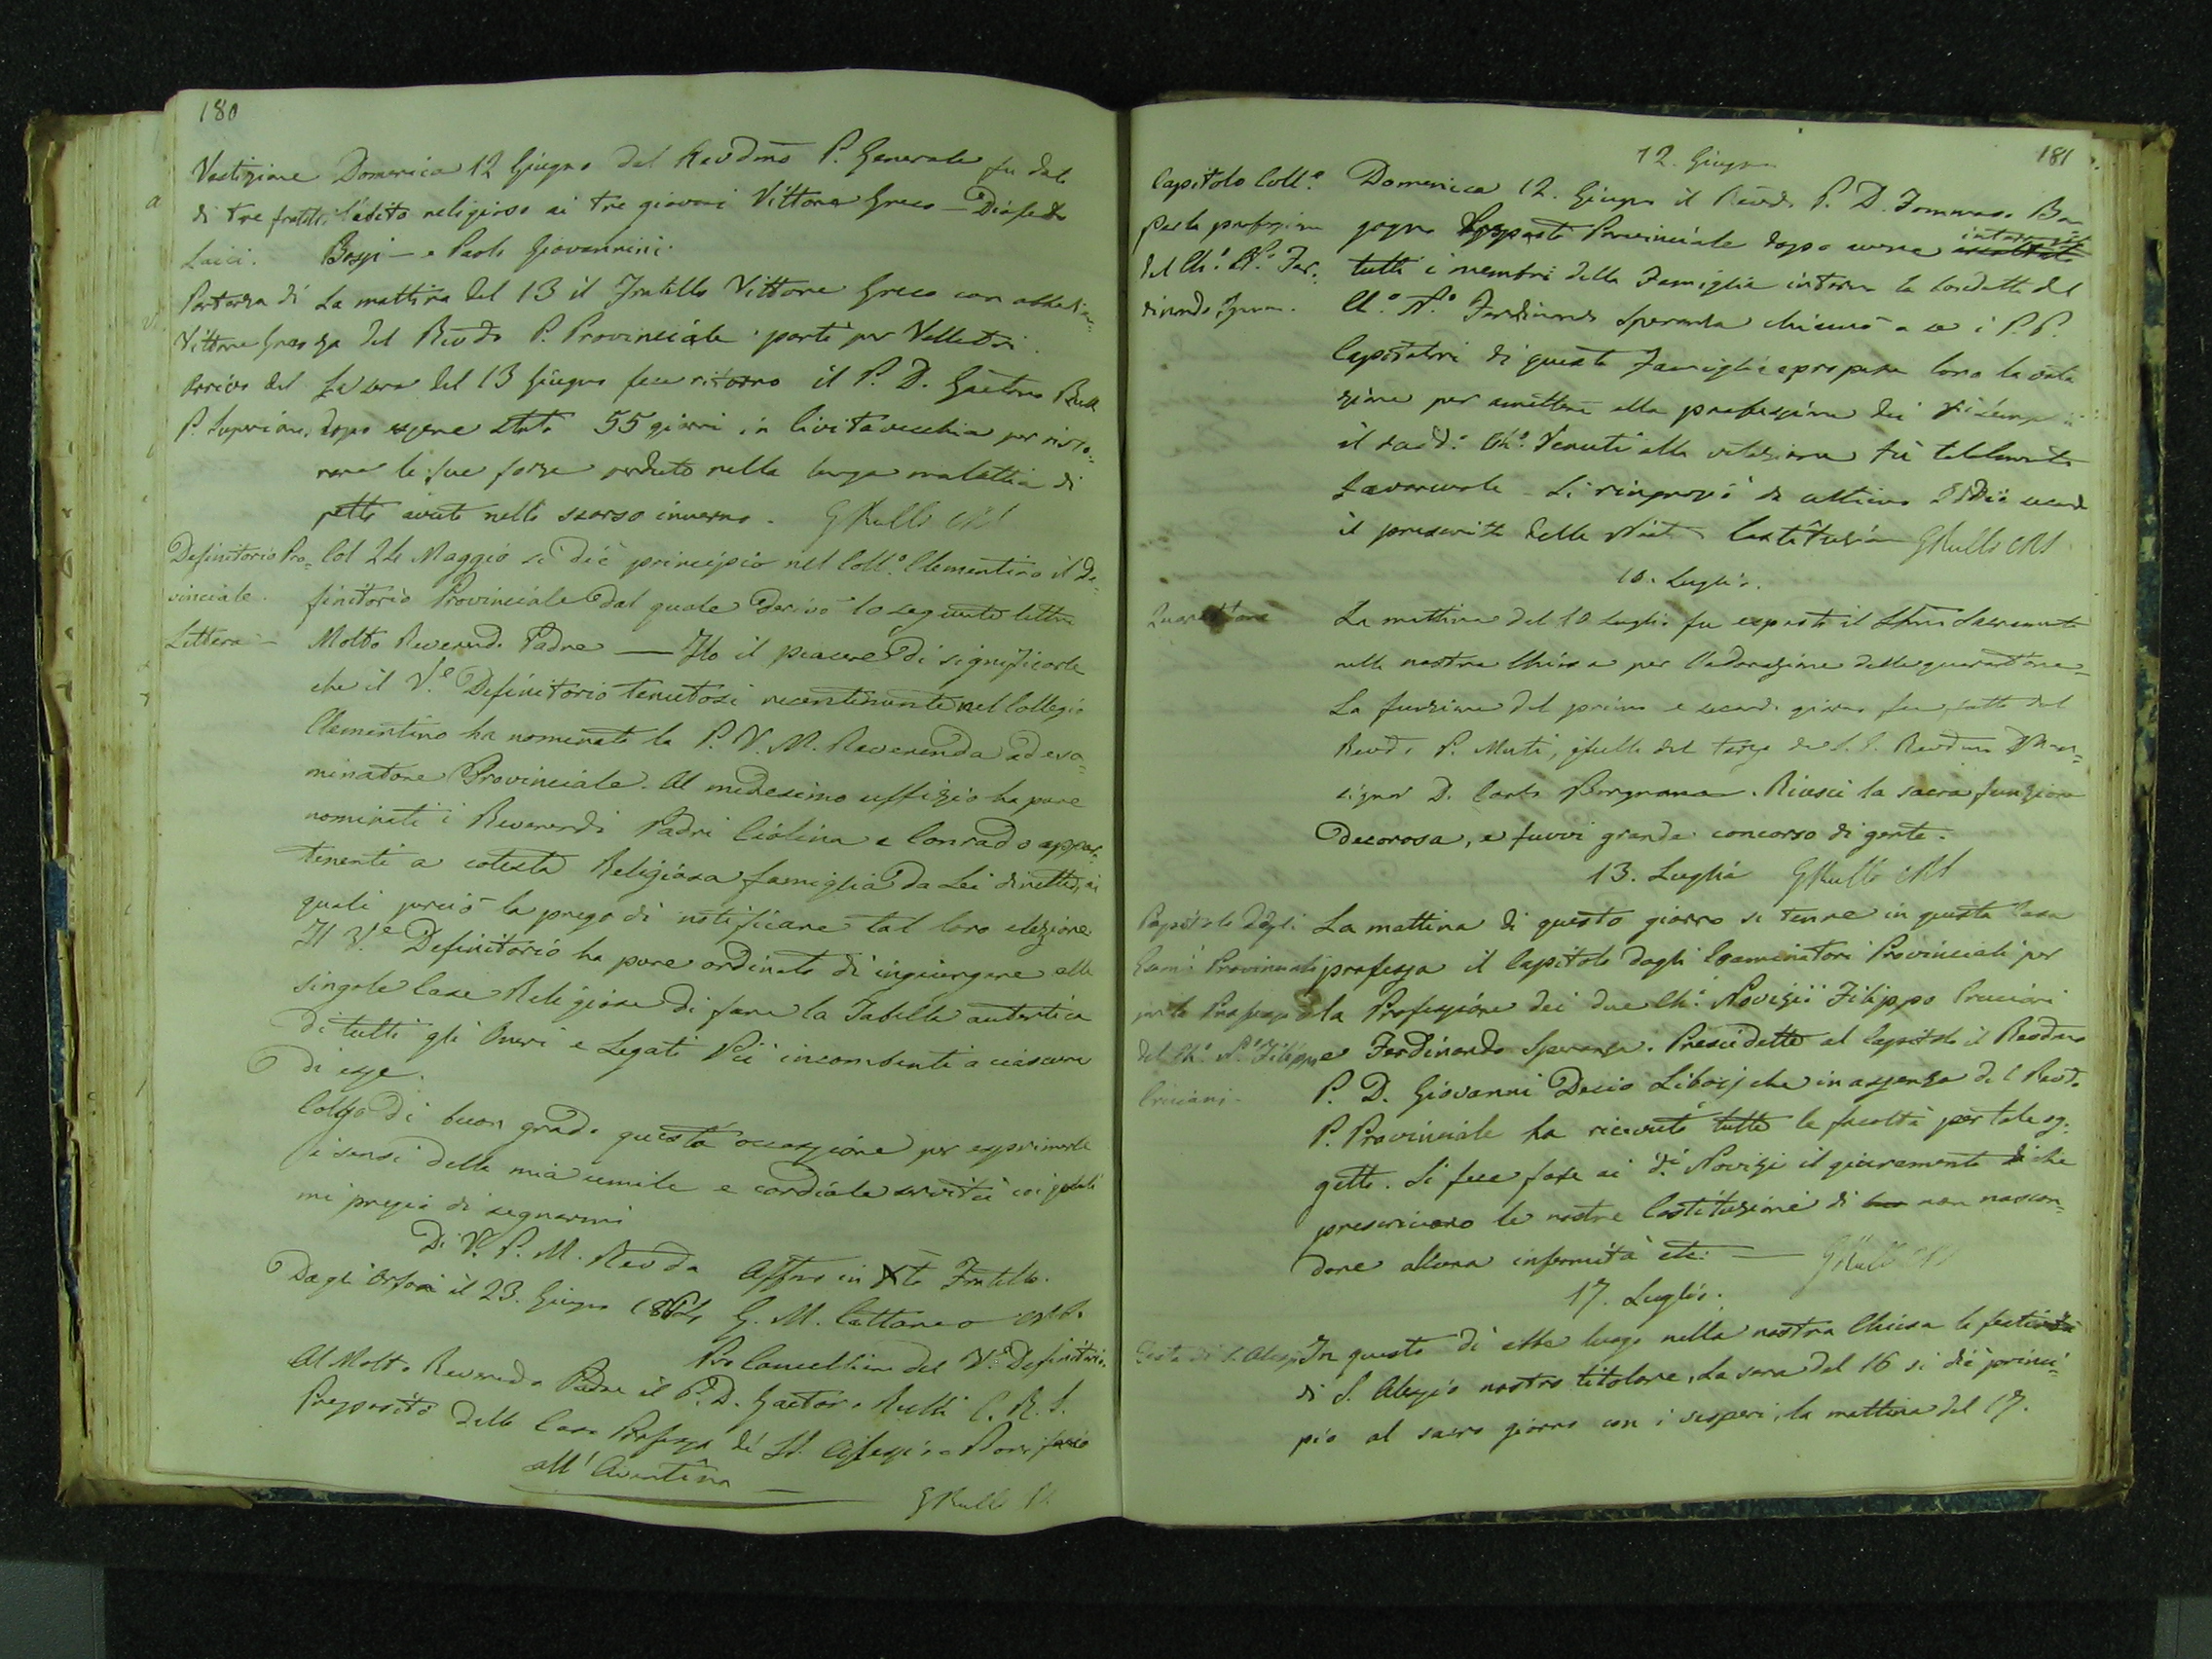 180
Vestizione
di tre fratelli
Laici.
Domenica 12 Giugno dal Revdmo P. Generale fu dato
l'abito religioso ai tre giovani Vittore Greco —
Bossi — e Paolo Giovannini.
Partenza di
Vittore Greco
La mattina del 13 il Fratello Vittore Greco con obbedien=
za del Revdo P. Provinciale partì per Velletri.
Arrivo del
P. Superiore
La sera del 13 Giugno fece ritorno il P. D. Gaetano Rulli
dopo essere stato 55 giorni in Civitavecchia per risto=
rare le sue forze perdute nella lunga malattia di
petto avuta nello scorso inverno. GRulli CRS
Definitorio Pro=
vinciale.
Col 24 Maggio si diè principio nel Coll.o Clementino il de=
finitorio Provinciale dal quale derivò la seguente lettera
Lettera —
Molto Reverendo Padre — Ho il piacere di significarle
che il V.e Definitorio tenutosi recentemente nel Collegio
Clementino ha nominato la P. V. M. Reverenda ad esa=
minatore Provinciale. Al medesimo uffizio ha pure
nominati i Reverendi Padri Ciolina e Conrado appar=
tenenti a cotesta Religiosa famiglia da Lei diretta, ai
quali perciò la prego di notificare tal loro elezione.
Il V.e Definitorio ha pure ordinato di ingiungere alle
singole Case Religiose di fare la Tabella autentica
di tutti gli Oneri e Legati Pii incombenti a ciascuna
di esse.
Colgo di buon grado questa occasione per esprimerle
i sensi della mia umile e cordiale servitù coi quali
mi pregio di segnarmi
Di V. P. M. Revda Affmo in Xto Fratello.
Dagli Orfani il 23. Giugno 1864 G. M. Cattaneo CRS.
Pro Cancelliere del V. Definitorio.
Al Molto Reverendo Padre il P. D. Gaetano Rulli C. R. S.
Preposito della Casa Professa di SS. Alessio e Bonifacio
all'Aventino —
GRulli
181
12. Giugno
Capitolo Coll.e
per la professione
del Ch.o N.o Fer=
dinando Speran.
Domenica 12. Giugno il Revdo P. D. Tommaso Bor
gogno Preposito Provinciale dopo avere ascoltati interrogati
tutti i membri della Famiglia intorno la condotta del
Ch.o N.o Ferdinando Speranza chiamò a se i P.P.
Capitolari di questa Famiglia e propose loro la vota
zione per ammettere alla professione dei
il sudd.o Ch.o Venuti alla votazione fù totalmente
favorevole. Si ringraziò da ultimo Iddio secondo
il prescritto delle Costituzioni GRulli CRS
10. Luglio.
Quarantore
La mattina del 10 Luglio fu esposto il Smo Sacramento
nella nostra Chiesa per l'adorazione delle quarantore.
La funzione del primo e secondo giorno fu fatta dal
Revdo P. Muti, quella del terzo da S. E. Revdma Mon=
signor D. Carlo Borgnana. Riuscì la sacra funzione
decorosa, e fuvvi grande concorso di gente.
13. Luglio GRulli CRS
Capitolo degli
Esami Provinciali
per la Professione
del Ch.o N.o Filippo
Cruciani.
La mattina di questo giorno si tenne in questa Casa
professa il Capitolo dagli Esaminatori Provinciali per
la Professione dei due Ch.i Novizii Filippo Cruciani
e Ferdinando Speranza. Presiedette al Capitolo il Revdmo
P. D. Giovanni Decio Libois che in assenza del Revdo
P. Provinciale ha ricevuto tutte le facoltà per tale og=
getto. Si fece fare ai d.i Novizi il giuramento che
prescrivono le nostre Costituzioni di non nascon=
dere alcuna infermità etc: — GRulli CRS
17. Luglio.
Festa di S. Alessio
In questo dì ebbe luogo nella nostra Chiesa la festività
di S. Alessio nostro titolare. La sera del 16 si diè princi=
pio al sacro giorno con i vesperi, la mattina del 17.